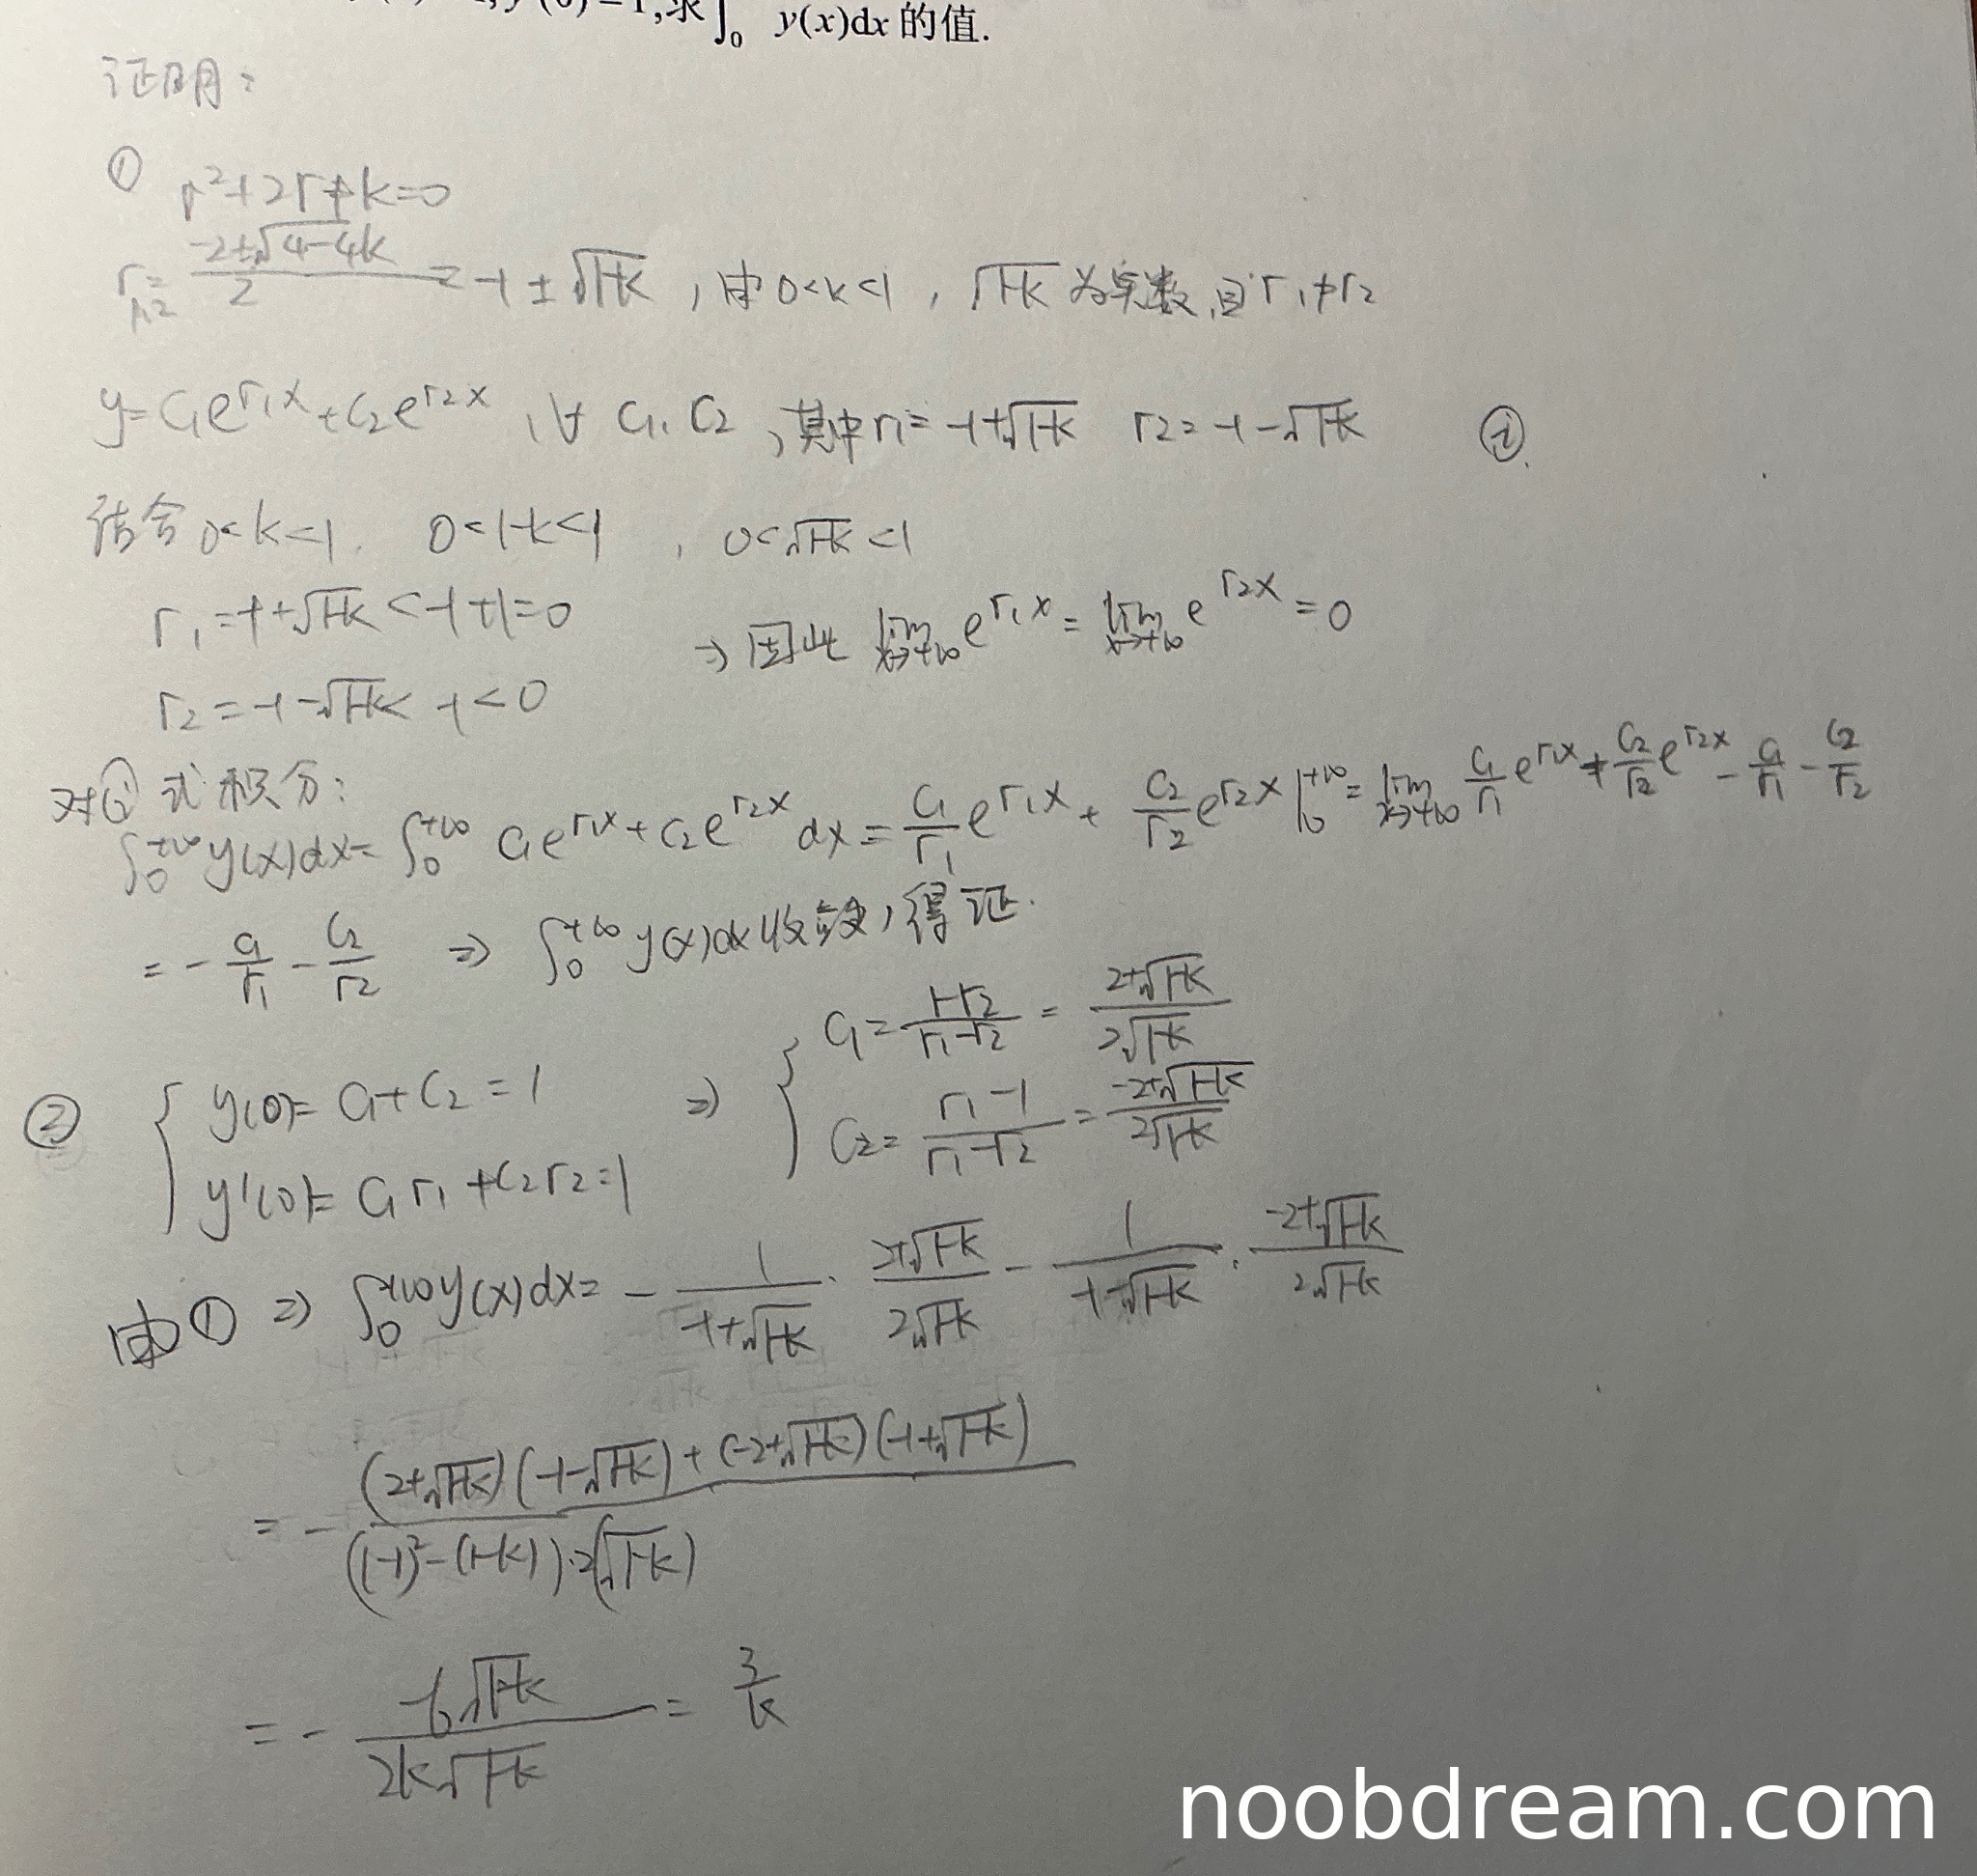 y(x)dx 的值.
证明:
① r²+2r+k=0
r₁,₂= (-2±√(4-4k))/2 = -1±√(1-k) , 由0<k<1 , √(1-k) 为实数,且 r₁≠r₂
y=C₁e^(r₁x)+C₂e^(r₂x) , ∀ C₁,C₂ ,其中r₁=-1+√(1-k) r₂=-1-√(1-k) ⓘ.
结合0<k<1. 0<1-k<1 , 0<√(1-k)<1
r₁=-1+√(1-k)<-1+1=0
⇒因此 lim(x→+∞) e^(r₁x) = lim(x→+∞) e^(r₂x) = 0
r₂=-1-√(1-k)<-1<0
对ⓘ式积分:
∫₀^(+∞) y(x)dx=∫₀^(+∞) C₁e^(r₁x)+C₂e^(r₂x) dx = C₁/r₁ e^(r₁x) + C₂/r₂ e^(r₂x) |₀^(+∞) = lim(x→+∞) C₁/r₁ e^(r₁x) + C₂/r₂ e^(r₂x) - C₁/r₁ - C₂/r₂
= - C₁/r₁ - C₂/r₂ ⇒ ∫₀^(+∞) y(x)dx收敛,得证.
② { y(0)=C₁+C₂=1 ⇒ { C₁=(1-r₂)/(r₁-r₂) = (2+√(1-k))/(2√(1-k))
y'(0)=C₁r₁+C₂r₂=1 C₂=(r₁-1)/(r₁-r₂) = (-2+√(1-k))/(2√(1-k))
由① ⇒ ∫₀^(+∞) y(x)dx= - 1/(-1+√(1-k)) · (2+√(1-k))/(2√(1-k)) - 1/(-1-√(1-k)) · (-2+√(1-k))/(2√(1-k))
= - ((2+√(1-k))(-1-√(1-k))+(-2+√(1-k))(-1+√(1-k)))/(((-1)²-(1-k))·2(√(1-k)))
= - (-6√(1-k))/(2k√(1-k)) = 3/k
noobdream.com